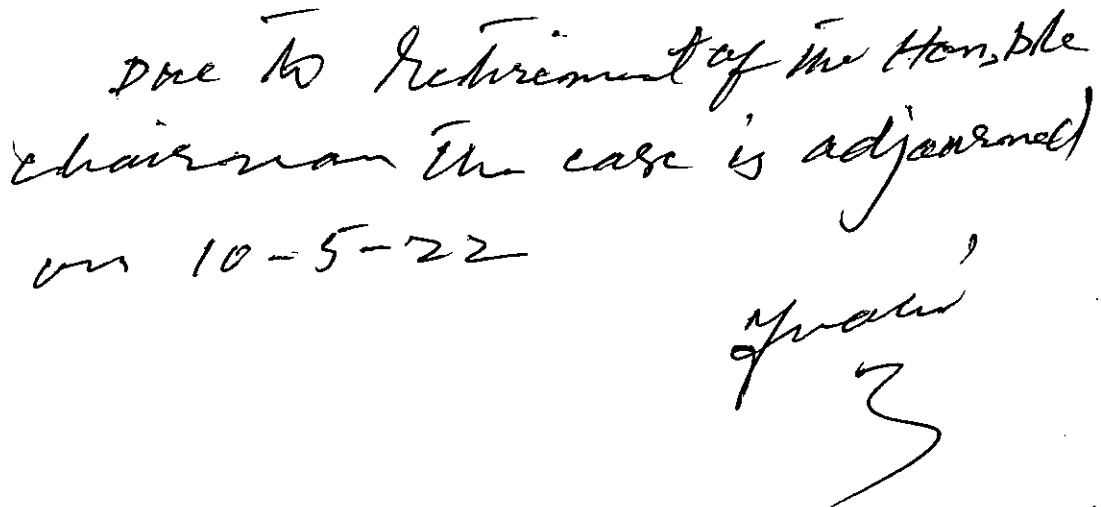 Due to Retirement of the Hon,ble
chairman the case is adjourned
on 10-5-22